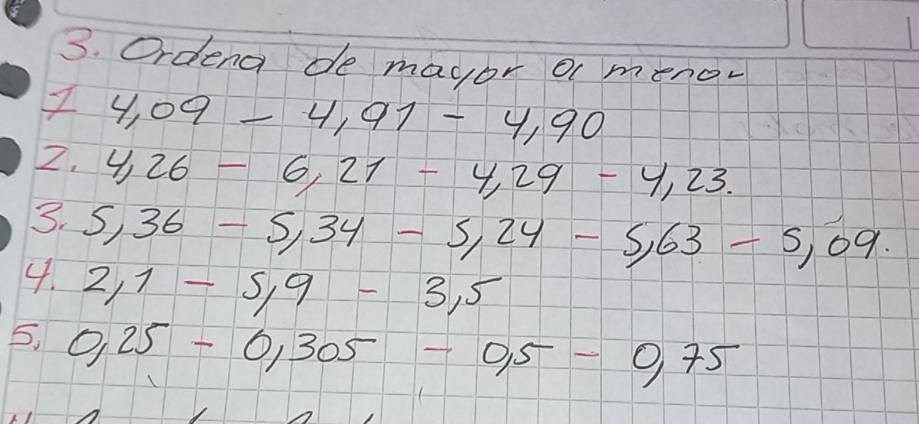 3. Ordena de mayor a menor
1 4,09 - 4,91 - 4,90
2. 4,26 - 6,21 - 4,29 - 4,23.
3. 5,36 - 5,34 - 5,24 - 5,63 - 5,09.
4. 2,1 - 5,9 - 3,5
5. 0,25 - 0,305 - 0,5 - 0,75